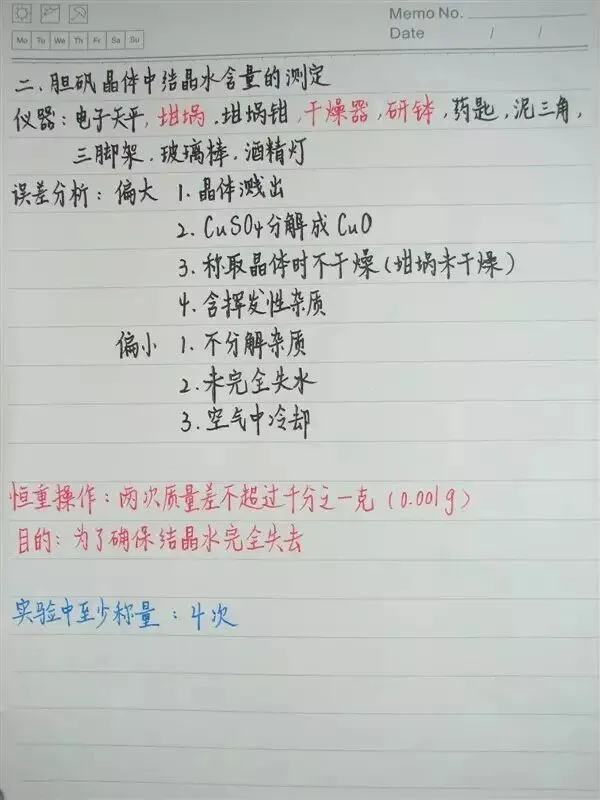 Memo No.
Mo Tu We Th Fr Sa Su
Date / /
二、胆矾晶体中结晶水含量的测定
仪器：电子天平，坩埚，坩埚钳，干燥器，研钵，药匙，泥三角，
三脚架．玻璃棒．酒精灯
误差分析：偏大 1. 晶体溅出
2. CuSO4分解成CuO
3. 称取晶体时不干燥（坩埚未干燥）
4. 含挥发性杂质
偏小 1. 不分解杂质
2. 未完全失水
3. 空气中冷却
恒重操作：两次质量差不超过千分之一克（0.001g）
目的：为了确保结晶水完全失去
实验中至少称量：4次